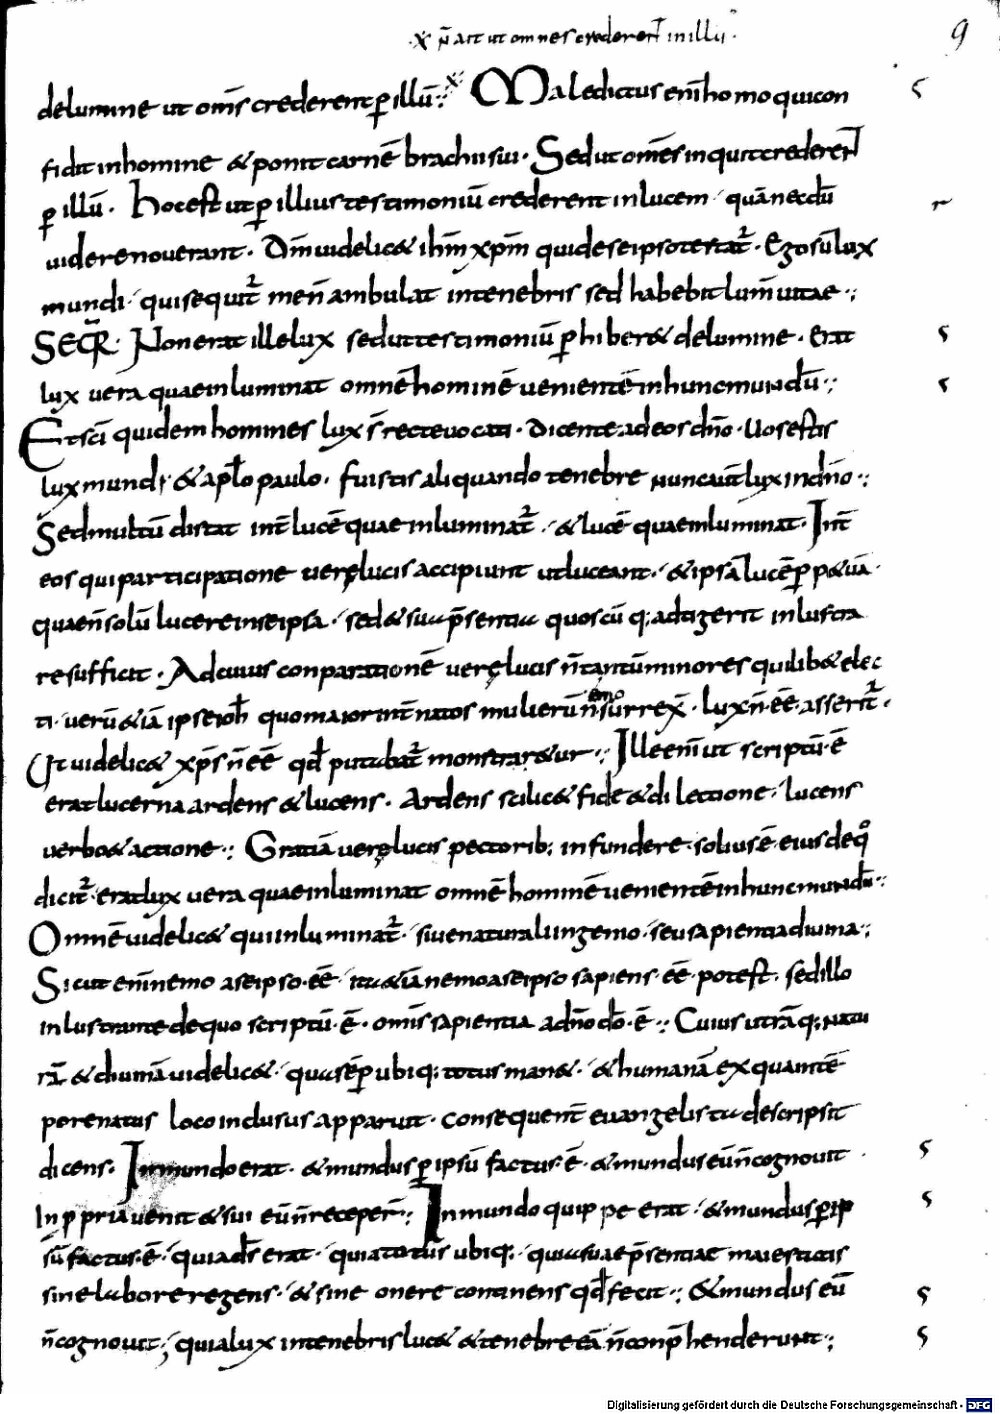 ·X· n̄ait ut omnes crederent̄ in illū·
9
delumine ut om̄s crederent ꝑ illū·; Maledictus eni̅ homo quicon
fidit inhomine & ponit carnē brachiisui· Sed ut om̄es inquit crederent̄
ꝑ illū· hocest ut ꝑ illius testimoniū crederent inlucem· quā necdū
uiderenouerant· Dn̄m uidelic& ih̄m xp̄m quideseipsotestat᷑· Egosū lux
mundi· quisequit᷑ men̄ambulat intenebris sed habebit lum̄ uitae·;
SEQR̄· Nonerat illelux seduttestimoniū ꝑhiber& delumine· Erat
lux uera quaeinluminat omnē hominē uenientē inhuncmundū·;
Etsc̄i quidem homines lux s̄ rectevocati· Dicente ad eos dn̄o· Uosestis
lux mundi· & apl̄o paulo· fuistis aliquando tenebre nuncaut̄ lux indn̄o·;
Sedmultū distat int̄ lucē quae inluminat᷑· & lucē quaeinluminat· Int̄
eos quiparticipatione ueręlucis accipiunt utluceant· & ipsā lucē ꝑp&uā·
quaen̄solū lucere inseipsa· sed & sua p̄sentia quoscūq; adtigerit inlustra
resufficit· Adcuius conparationē uerę lucis n̄tantū minores quilib& elec
ti· uerū &iā ipseioh̄ quomaiorint̄ natos mulierū nemo surrex̄· lux n̄· ēē· asserit᷑·
Ut uidelic& xp̄s n̄ ēē qd̄ putabat᷑ monstrar&ur·; Illeeni̅ ut scriptū· ē
eratlucerna ardens & lucens· Ardens scilic& fide & dilectione· lucens
verbo & actione·; Gratiā ueręlucis pectorib; infundere· solius· ē· eius dequo
dicit᷑· eratlux uera quaeinluminat omnē hominē uenientē inhuncmundū·;
Omnē uidelic& quiinluminat᷑· siuenaturali ingenio· seu sapientia diuina·;
Sicut eni̅ nemo aseipso· ēē· ita &iā nemo aseipso sapiens· ēē· potest· sedillo
inlustrante dequo scriptū· ē· om̄is sapientia adn̄o dō· ē·; Cuius utrāq; natu
rā· & diuinā uidelic&· qua sēꝑ ubiq; totus man&· & humanā ex qua intē
pore natus loco inclusus apparuit· consequent̄ euangelista descripsit
dicens· Inmundo erat· & mundus ꝑ ipsū factus· ē· & mundus eūn̄cognouit·
Inꝓpria uenit & sui eūn̄ receper̄·; Inmundo quippe erat· & mundus ꝑ ip
sū factus· ē· quia ds̄ erat· quia totus ubiq;· quia suae p̄sentiae maiestatis
sine labore regens· & sine onere continens qd̄ fecit·; & mundus eū
n̄cognouit·; quialux intenebris luc& & tenebre eā n̄conp̄henderunt·;